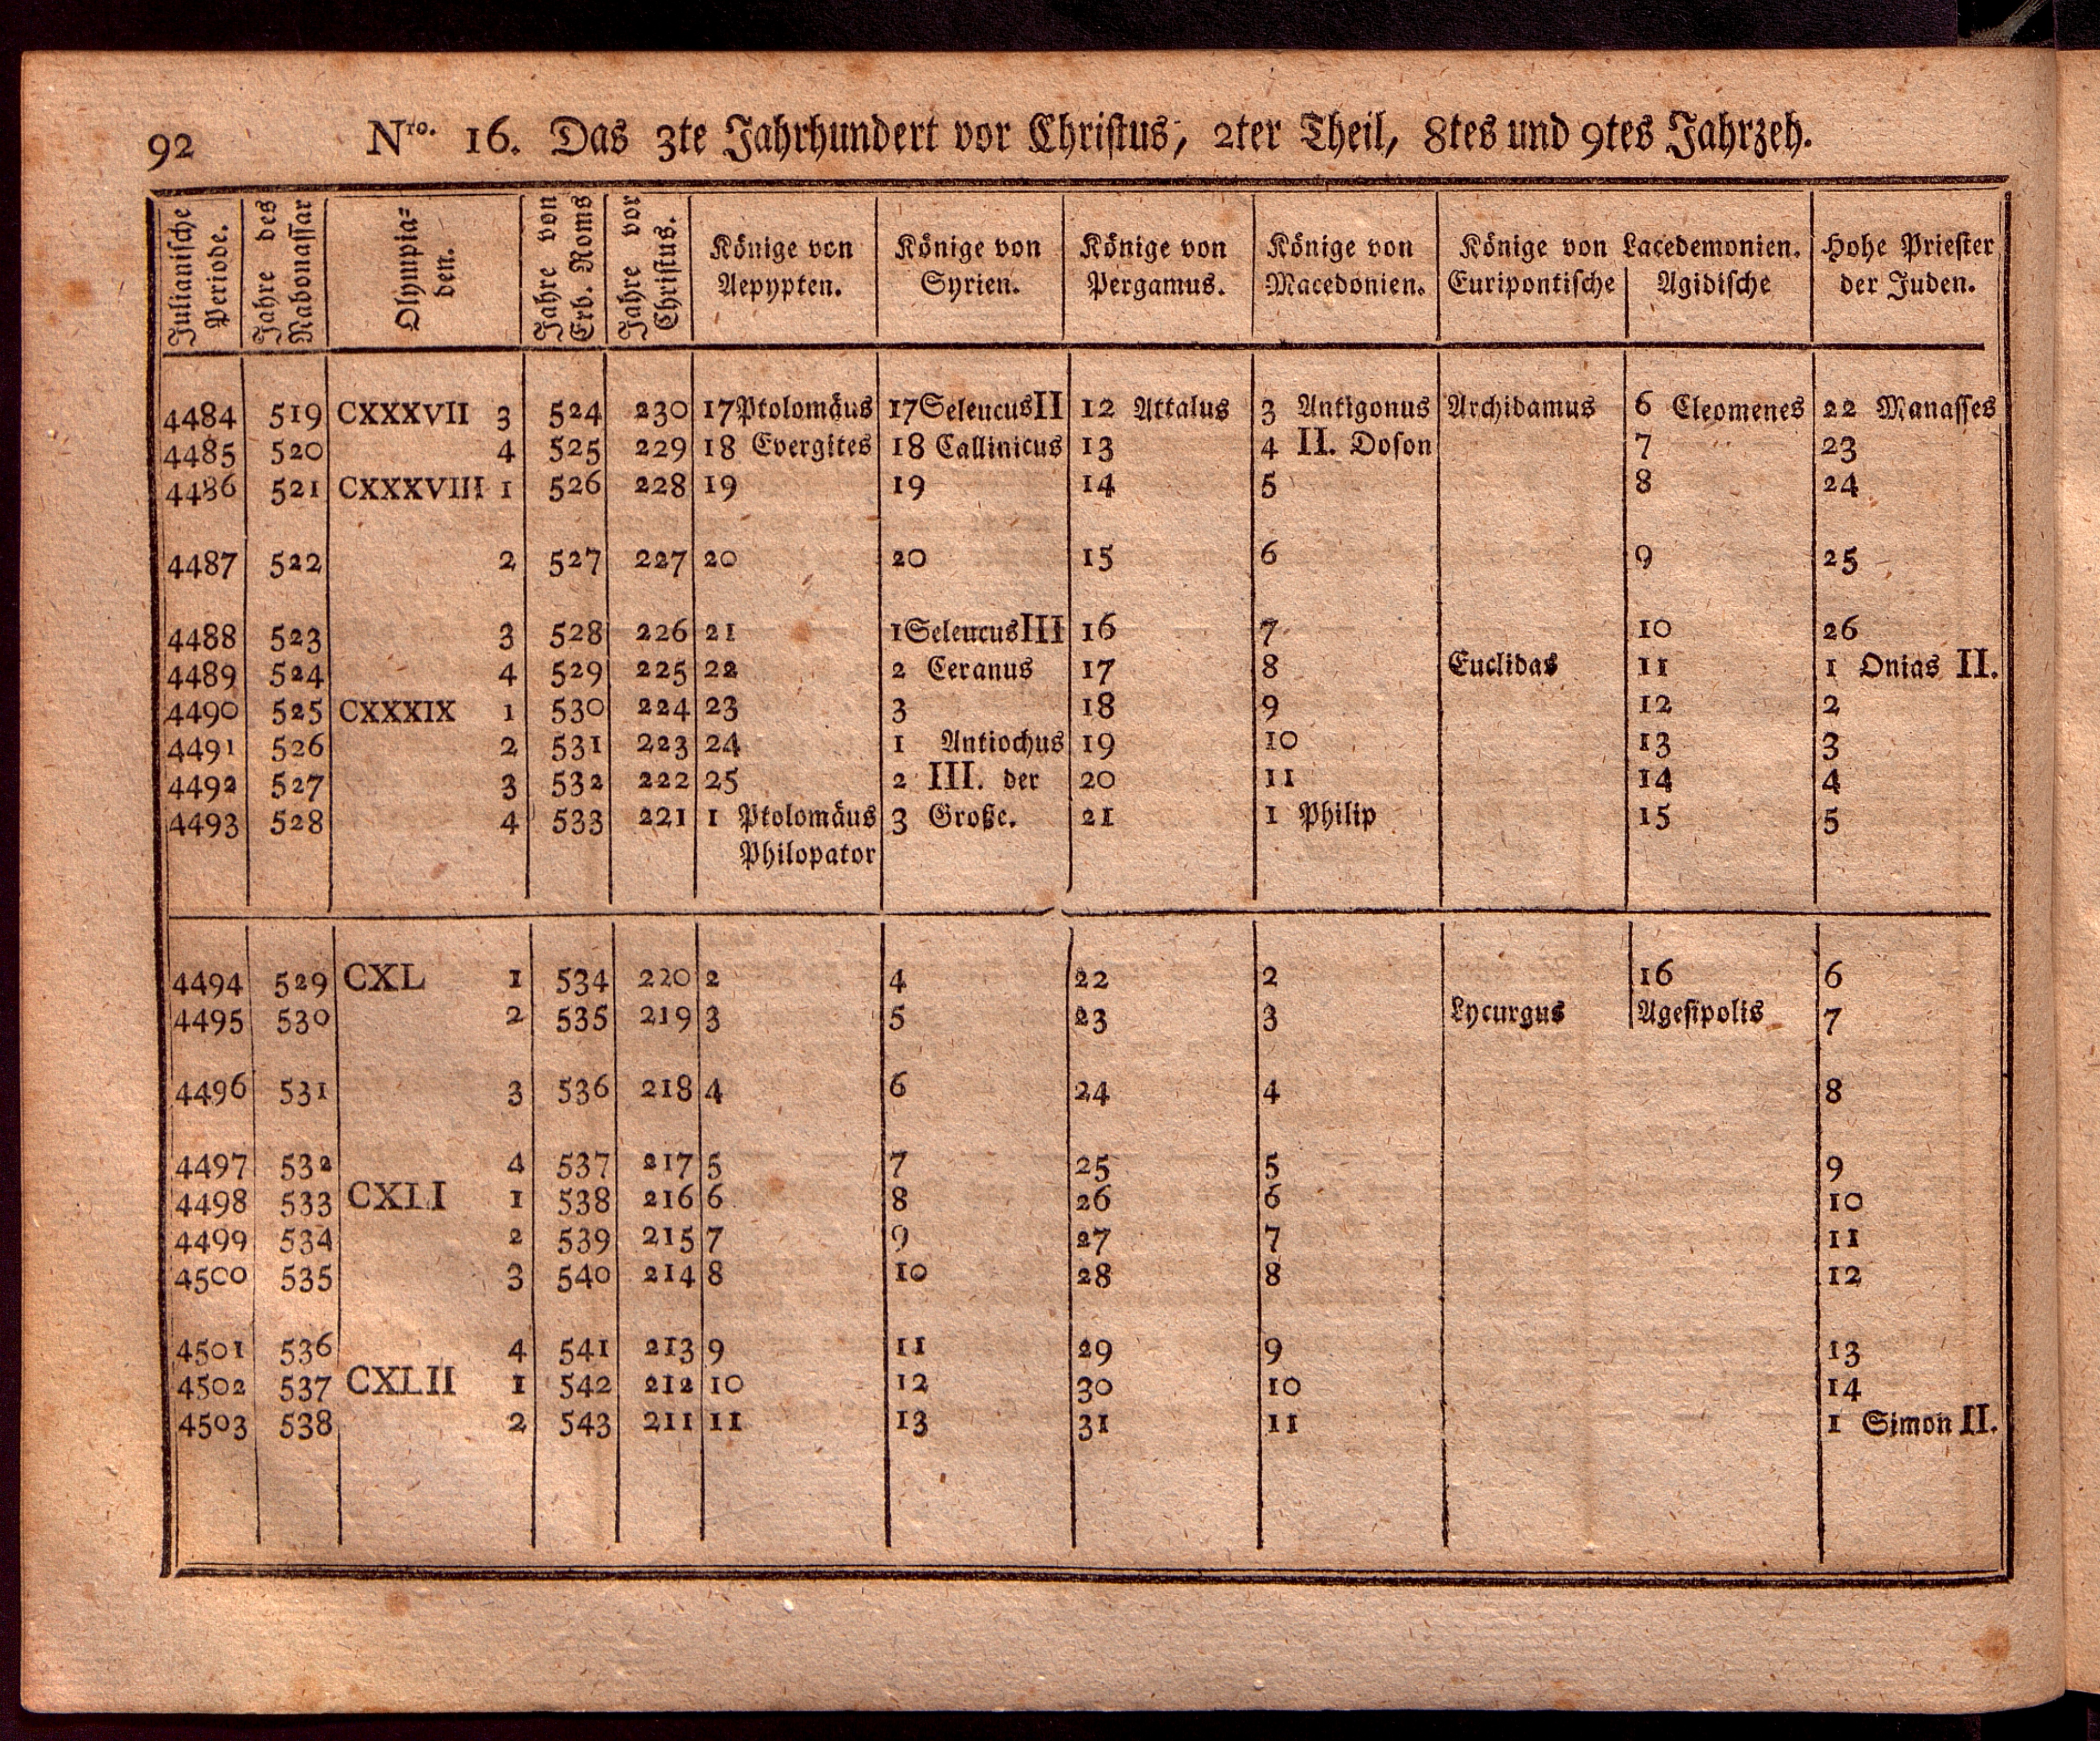 92 Nro. 16. Das 3te Jahrhundert vor Christus, 2ter Theil, 8tes und 9tes Jahrzeh.
Julianische Periode. Jahre des Nabonassar Olympia=den. Jahre von Erb. Roms Jahre vor Christus. Könige von Aepypten. Könige von Syrien. Könige von Pergamus. Könige von Macedonien. Könige von Lacedemonien. Euripontische Agidische Hohe Priester der Juden.
4484 519 CXXXVII 3 524 230 17 Ptolomäus 17 Seleucus II 12 Attalus 3 Antigonus Archidamus 6 Cleomenes 22 Manasses
4485 520 4 525 229 18 Evergites 18 Callinicus 13 4 II. Doson 7 23
4486 521 CXXXVIII 1 526 228 19 19 14 5 8 24
4487 522 2 527 227 20 20 15 6 9 25
4488 523 3 528 226 21 1 Seleucus III 16 7 10 26
4489 524 4 529 225 22 2 Ceranus 17 8 Euclidas 11 1 Onias II.
4490 525 CXXXIX 1 530 224 23 3 18 9 12 2
4491 526 2 531 223 24 1 Antiochus 19 10 13 3
4492 527 3 532 222 25 2 III. der 20 11 14 4
4493 528 4 533 221 1 Ptolomäus 3 Große. 21 1 Philip 15 5
Philopator
4494 529 CXL 1 534 220 2 4 22 2 16 6
4495 530 2 535 219 3 5 23 3 Lycurgus Agesipolis 7
4496 531 3 536 218 4 6 24 4 8
4497 532 4 537 217 5 7 25 5 9
4498 533 CXLI 1 538 216 6 8 26 6 10
4499 534 2 539 215 7 9 27 7 11
4500 535 3 540 214 8 10 28 8 12
4501 536 4 541 213 9 11 29 9 13
4502 537 CXLII 1 542 212 10 12 30 10 14
4503 538 2 543 211 11 13 31 11 1 Simon II.